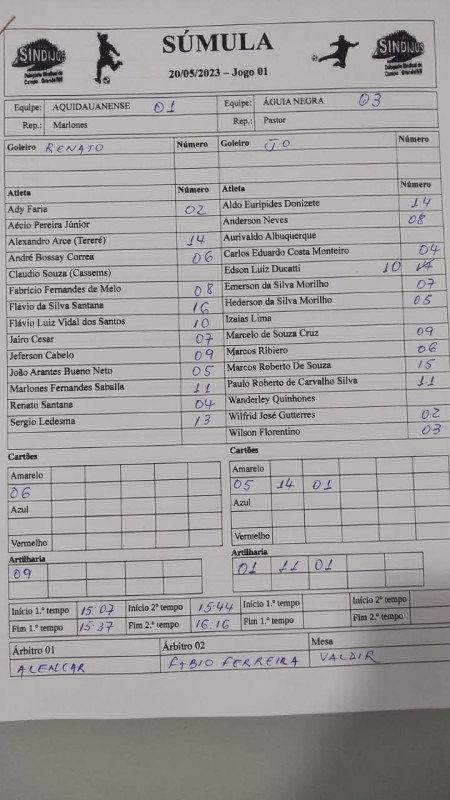 SINDIJUS
Delegacia Sindical de
Campo - Grande/MS
SÚMULA
20/05/2023 – Jogo 01
SINDIJUS
Delegacia Sindical de
Campo - Grande/MS
Equipe: AQUIDAUANENSE 01 Equipe: ÁGUIA NEGRA 03
Rep.: Marlones Rep.: Pastor
Goleiro RENATO Número Goleiro JO Número
Atleta Número Atleta Número
Ady Faria 02 Aldo Eurípides Donizete 14
Aécio Pereira Júnior Anderson Neves 08
Alexandro Arce (Tereré) 14 Aurivaldo Albuquerque
André Bossay Correa 06 Carlos Eduardo Costa Monteiro 04
Claudio Souza (Cassems) Edson Luiz Ducatti 10
Fabrício Fernandes de Melo 08 Emerson da Silva Morilho 07
Flávio da Silva Santana 16 Hederson da Silva Morilho 05
Flávio Luiz Vidal dos Santos 10 Izaias Lima
Jairo Cesar 07 Marcelo de Souza Cruz 09
Jeferson Cabelo 09 Marcos Ribiero 06
João Arantes Bueno Neto 05 Marcos Roberto De Souza 15
Marlones Fernandes Saballa 11 Paulo Roberto de Carvalho Silva 11
Renato Santana 04 Wanderley Quinhones
Sergio Ledesma 13 Wilfrid José Gutterres 02
Wilson Florentino 03
Cartões Cartões
Amarelo Amarelo
06 05 14 01
Azul Azul
Vermelho Vermelho
Artilharia Artilharia
09 01 11 01
Início 1.º tempo 15:07 Início 2º tempo 15:44 Início 1.º tempo Início 2º tempo
Fim 1.º tempo 15:37 Fim 2.º tempo 16:16 Fim 1.º tempo Fim 2.º tempo
Árbitro 01 Árbitro 02 Mesa
ALENCAR FABIO FERREIRA VALDIR